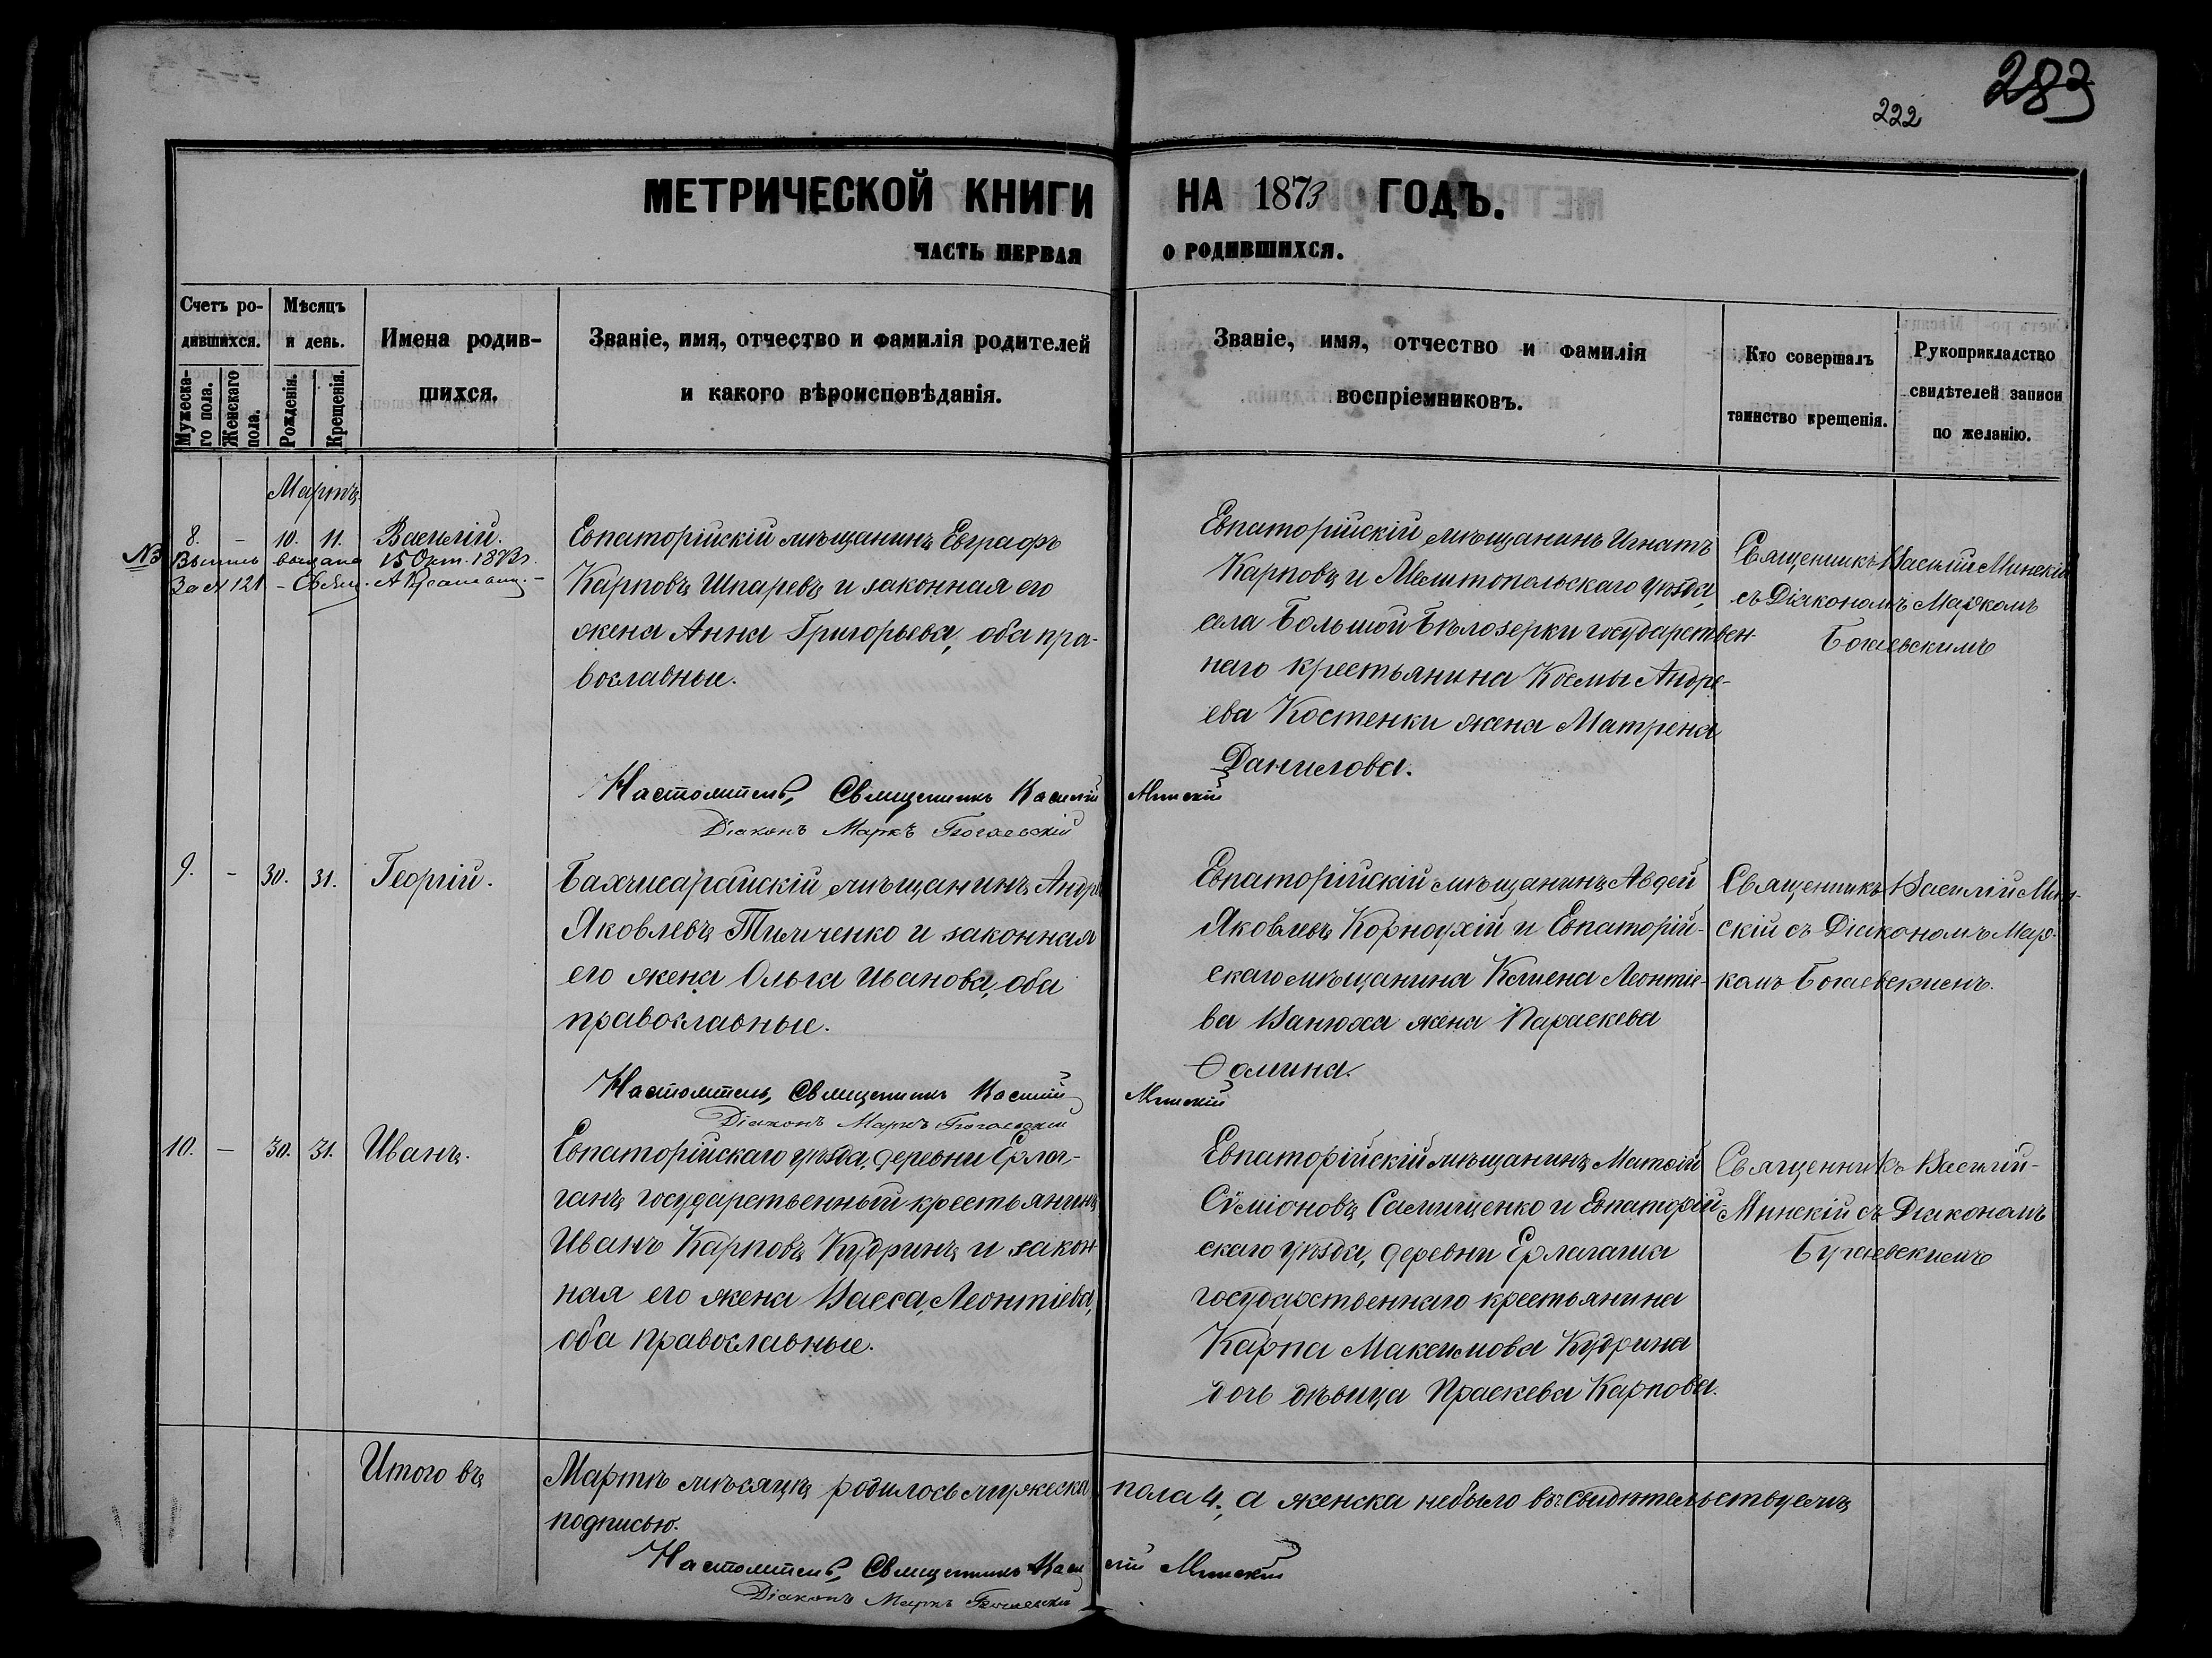 283
222
МЕТРИЧЕСКОЙ КНИГИ НА 1873 ГОДЪ.
ЧАСТЬ ПЕРВАЯ О РОДИВШИХСЯ.
Счетъ ро-
дившихся.
Мужеска-
го пола.
Женскаго
пола.
Мѣсяцъ
и день.
Рожденія.
Крещенія.
Имена родив-
шихся.
Званіе, имя, отчество и фамилія родителей
и какого вѣроисповѣданія.
Званіе, имя, отчество и фамилія
воспріемниковъ.
Кто совершалъ
таинство крещенія.
Рукоприкладство
свидѣтелей записи
по желанію.
Мартъ
8. - 10. 11. Василій.
выдана 15 Окт. 1873 г.
За № 121
Евпаторійскій мѣщанинъ Евграфъ
Карповъ Шпаревъ и законная его
жена Анна Григорьева, оба пра-
вославные.
Евпаторійскій мѣщанинъ Игнатъ
Карповъ и Мелитопольскаго уѣзда,
села Большой Бѣлозерки государствен-
наго крестьянина Косьмы Андре-
ева Костенки жена Матрена
Данилова.
Священникъ Василій Минскій
съ Діакономъ Маркомъ
Богаевскимъ
Настоятель, Священникъ Василій Минскій
Діаконъ Маркъ Богаевскій
9. - 30. 31. Георгій.
Бахчисарайскій мѣщанинъ Андрей
Яковлевъ Тимченко и законная
его жена Ольга Иванова, оба
православные.
Евпаторійскій мѣщанинъ Авдей
Яковлевъ Корноухій и Евпаторій-
скаго мѣщанина Леонтіе-
ва Ванюха жена Параскева
Ѳомина.
Священникъ Василій Мин-
скій съ Діакономъ Мар-
комъ Богаевскимъ.
Настоятель, Священникъ Василій Минскій
Діаконъ Маркъ Богаевскій
10. - 30. 31. Иванъ.
Евпаторійскаго уѣзда, деревни Ерлаг-
ганъ государственный крестьянинъ
Иванъ Карповъ Кудринъ и закон-
ная его жена Васса Леонтіева,
оба православные.
Евпаторійскій мѣщанинъ Матѳій
Сѵміоновъ Самищенко и Евпаторій-
скаго уѣзда, деревни
государственнаго крестьянина
Карпа Максимова Кудрина
дочь дѣвица Праскева Карпова.
Священникъ Василій
Минскій съ Діакономъ
Бугаевскимъ
Итого въ Мартѣ мѣсяцѣ родилось мужеска пола 4, а женска небыло въ свидѣтельствуемъ
подписью.
Настоятель, Священникъ Василій Минскій
Діаконъ Маркъ Богаевскій